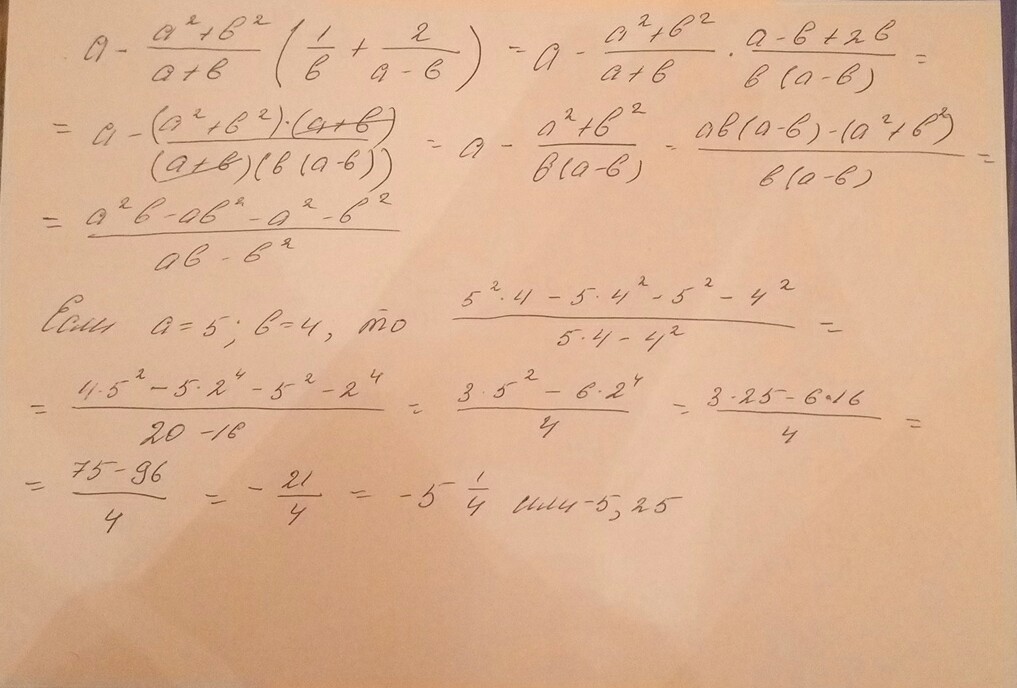 a - \frac{a²+b²}{a+b} ( \frac{1}{b} + \frac{2}{a-b} ) = a - \frac{a²+b²}{a+b} · \frac{a-b+2b}{b(a-b)} =
= a - \frac{(a²+b²)·(a+b)}{(a+b)(b(a-b))} = a - \frac{a²+b²}{b(a-b)} = \frac{ab(a-b)-(a²+b²)}{b(a-b)} =
= \frac{a²b-ab²-a²-b²}{ab-b²}
Если a=5; b=4, то \frac{5²·4-5·4²-5²-4²}{5·4-4²} =
= \frac{4·5²-5·2⁴-5²-2⁴}{20-16} = \frac{3·5²-6·2⁴}{4} = \frac{3·25-6·16}{4} =
= \frac{75-96}{4} = -\frac{21}{4} = -5\frac{1}{4} или -5,25